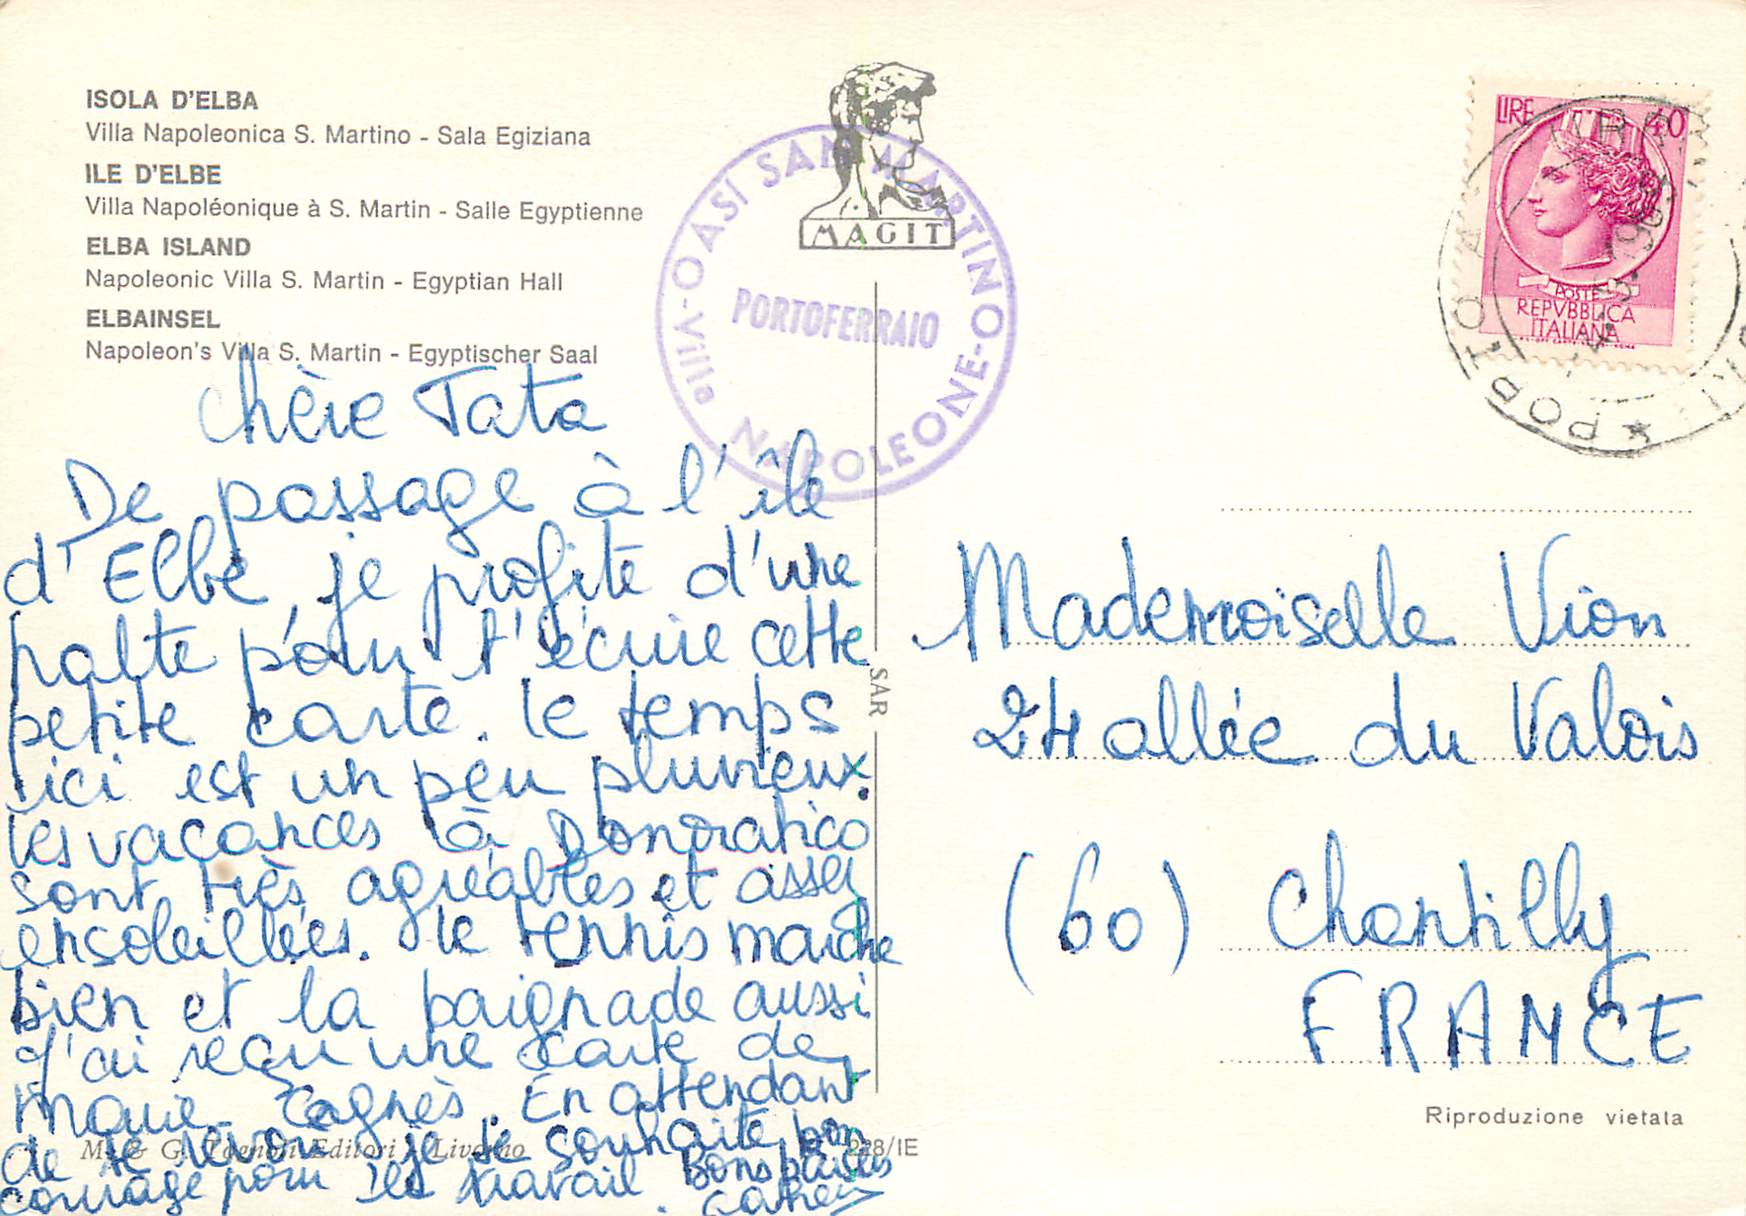 ISOLA D'ELBA
Villa Napoleonica S. Martino - Sala Egiziana
ILE D'ELBE
Villa Napoléonique à S. Martin - Salle Egyptienne
ELBA ISLAND
Napoleonic Villa S. Martin - Egyptian Hall
ELBAINSEL
Napoleon's Villa S. Martin - Egyptischer Saal
MAGIT
OASI SAN MARTINO
PORTOFERRAIO
Villa NAPOLEONE
LIRE 40
POSTE
REPVBBLICA
ITALIANA
1969
Chère Tata
De passage à l'île
d'Elbe, je profite d'une
halte pour t'écrire cette
petite carte. le temps
ici est un peu pluvieux.
les vacances à Donoratico
sont très agréables et assez
ensoleillées. le tennis marche
bien et la baignade aussi
J'ai reçu une carte de
Marie Agnès. En attendant
de te revoir je te souhaite bon
courage pour le travail. Bons baisers
SAR
Mademoiselle Vion
24 allée du Valois
(60) Chantilly
FRANCE
Riproduzione vietata
M. & G. Tognoli Editori - Livorno
228/IE